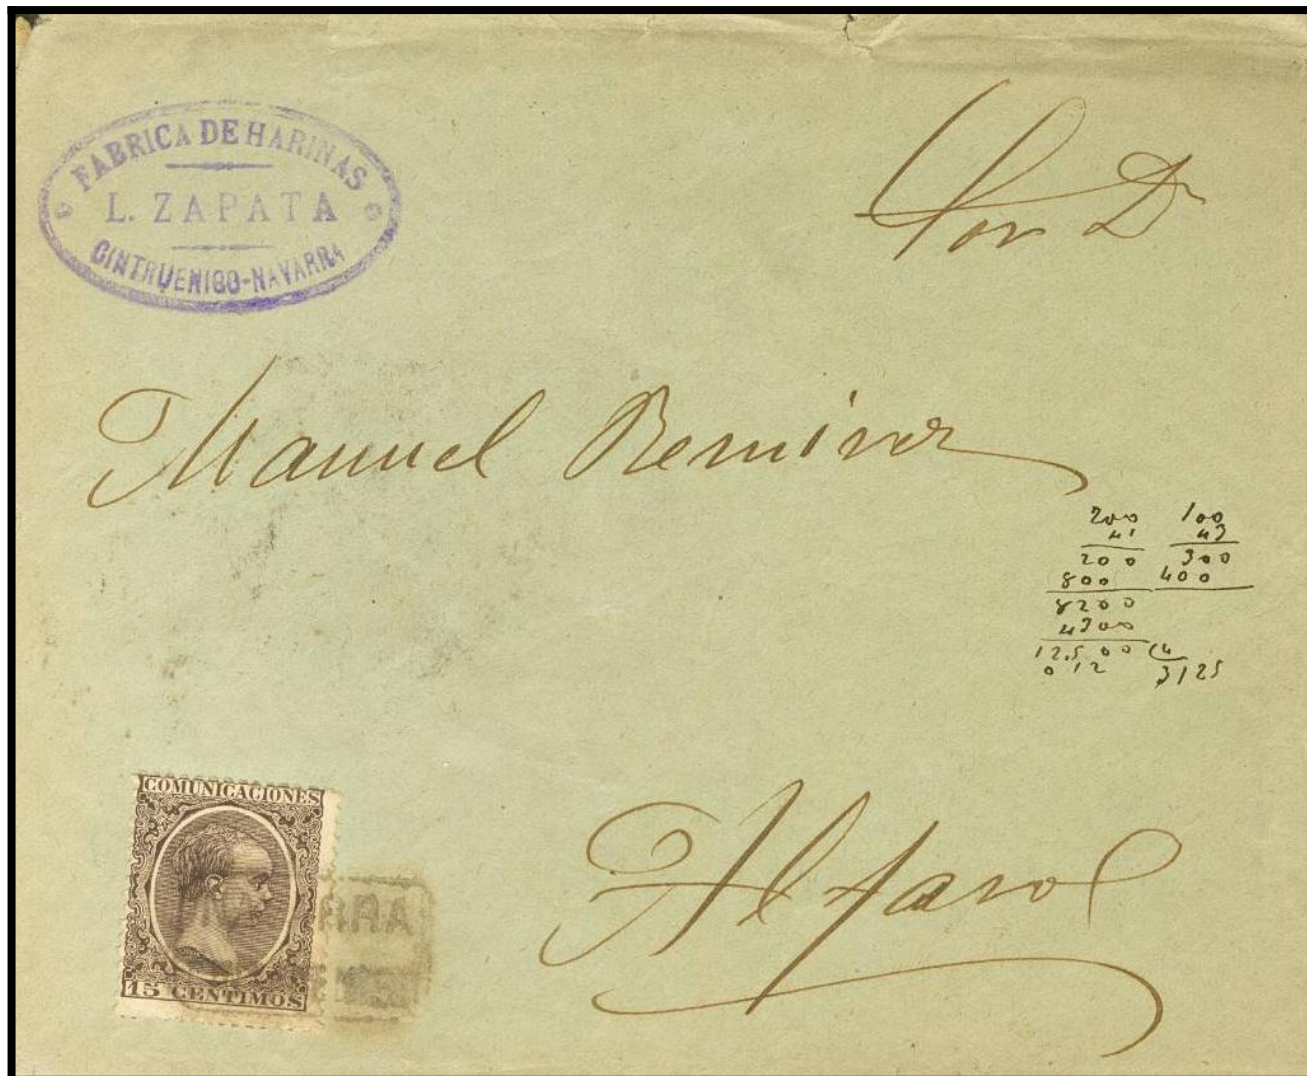 FABRICA DE HARINAS
L. ZAPATA
CINTRUENIGO-NAVARRA
Sor Dn
Manuel Remirez
200 100
41 43
200 300
800 400
8200
4300
12.500 4
012 3125
Alfaro
COMUNICACIONES
15 CENTIMOS
RRA